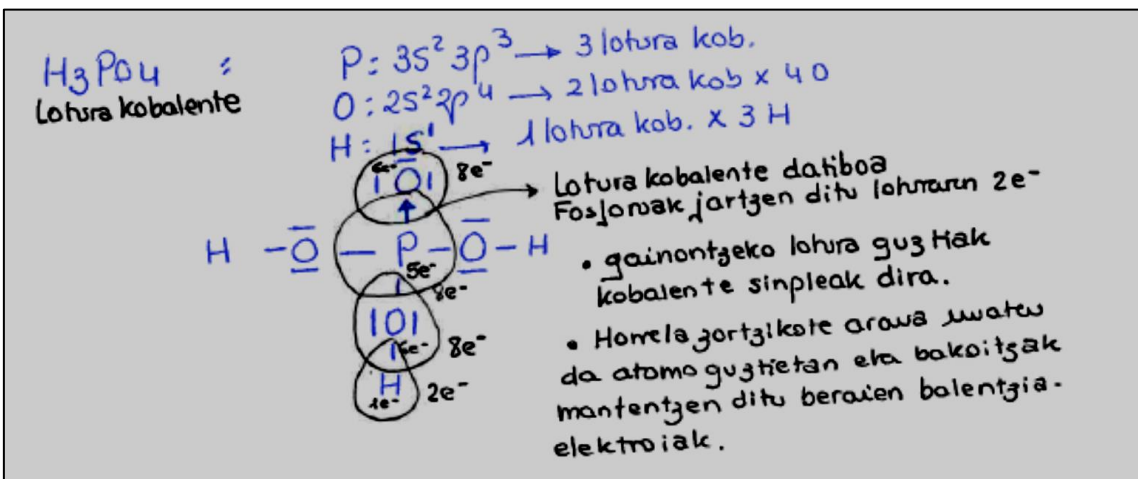 H₃PO₄ :
Lotura kobalente
P: 3s² 3p³ → 3 lotura kob.
O: 2s² 2p⁴ → 2 lotura kob x 4 O
H: 1s¹ → 1 lotura kob. x 3 H
6e⁻ |O| 8e⁻
H - O - P - O - H
5e⁻
8e⁻
|O|
6e⁻ 8e⁻
H
1e⁻ 2e⁻
Lotura kobalente datiboa
Fosforoak jartzen ditu loturaren 2e⁻
• gainontzeko lotura guztiak
kobalente sinpleak dira.
• Horrela zortzikote araua
da atomo guztietan eta bakoitzak
mantentzen ditu beraien balentzia-
elektroiak.